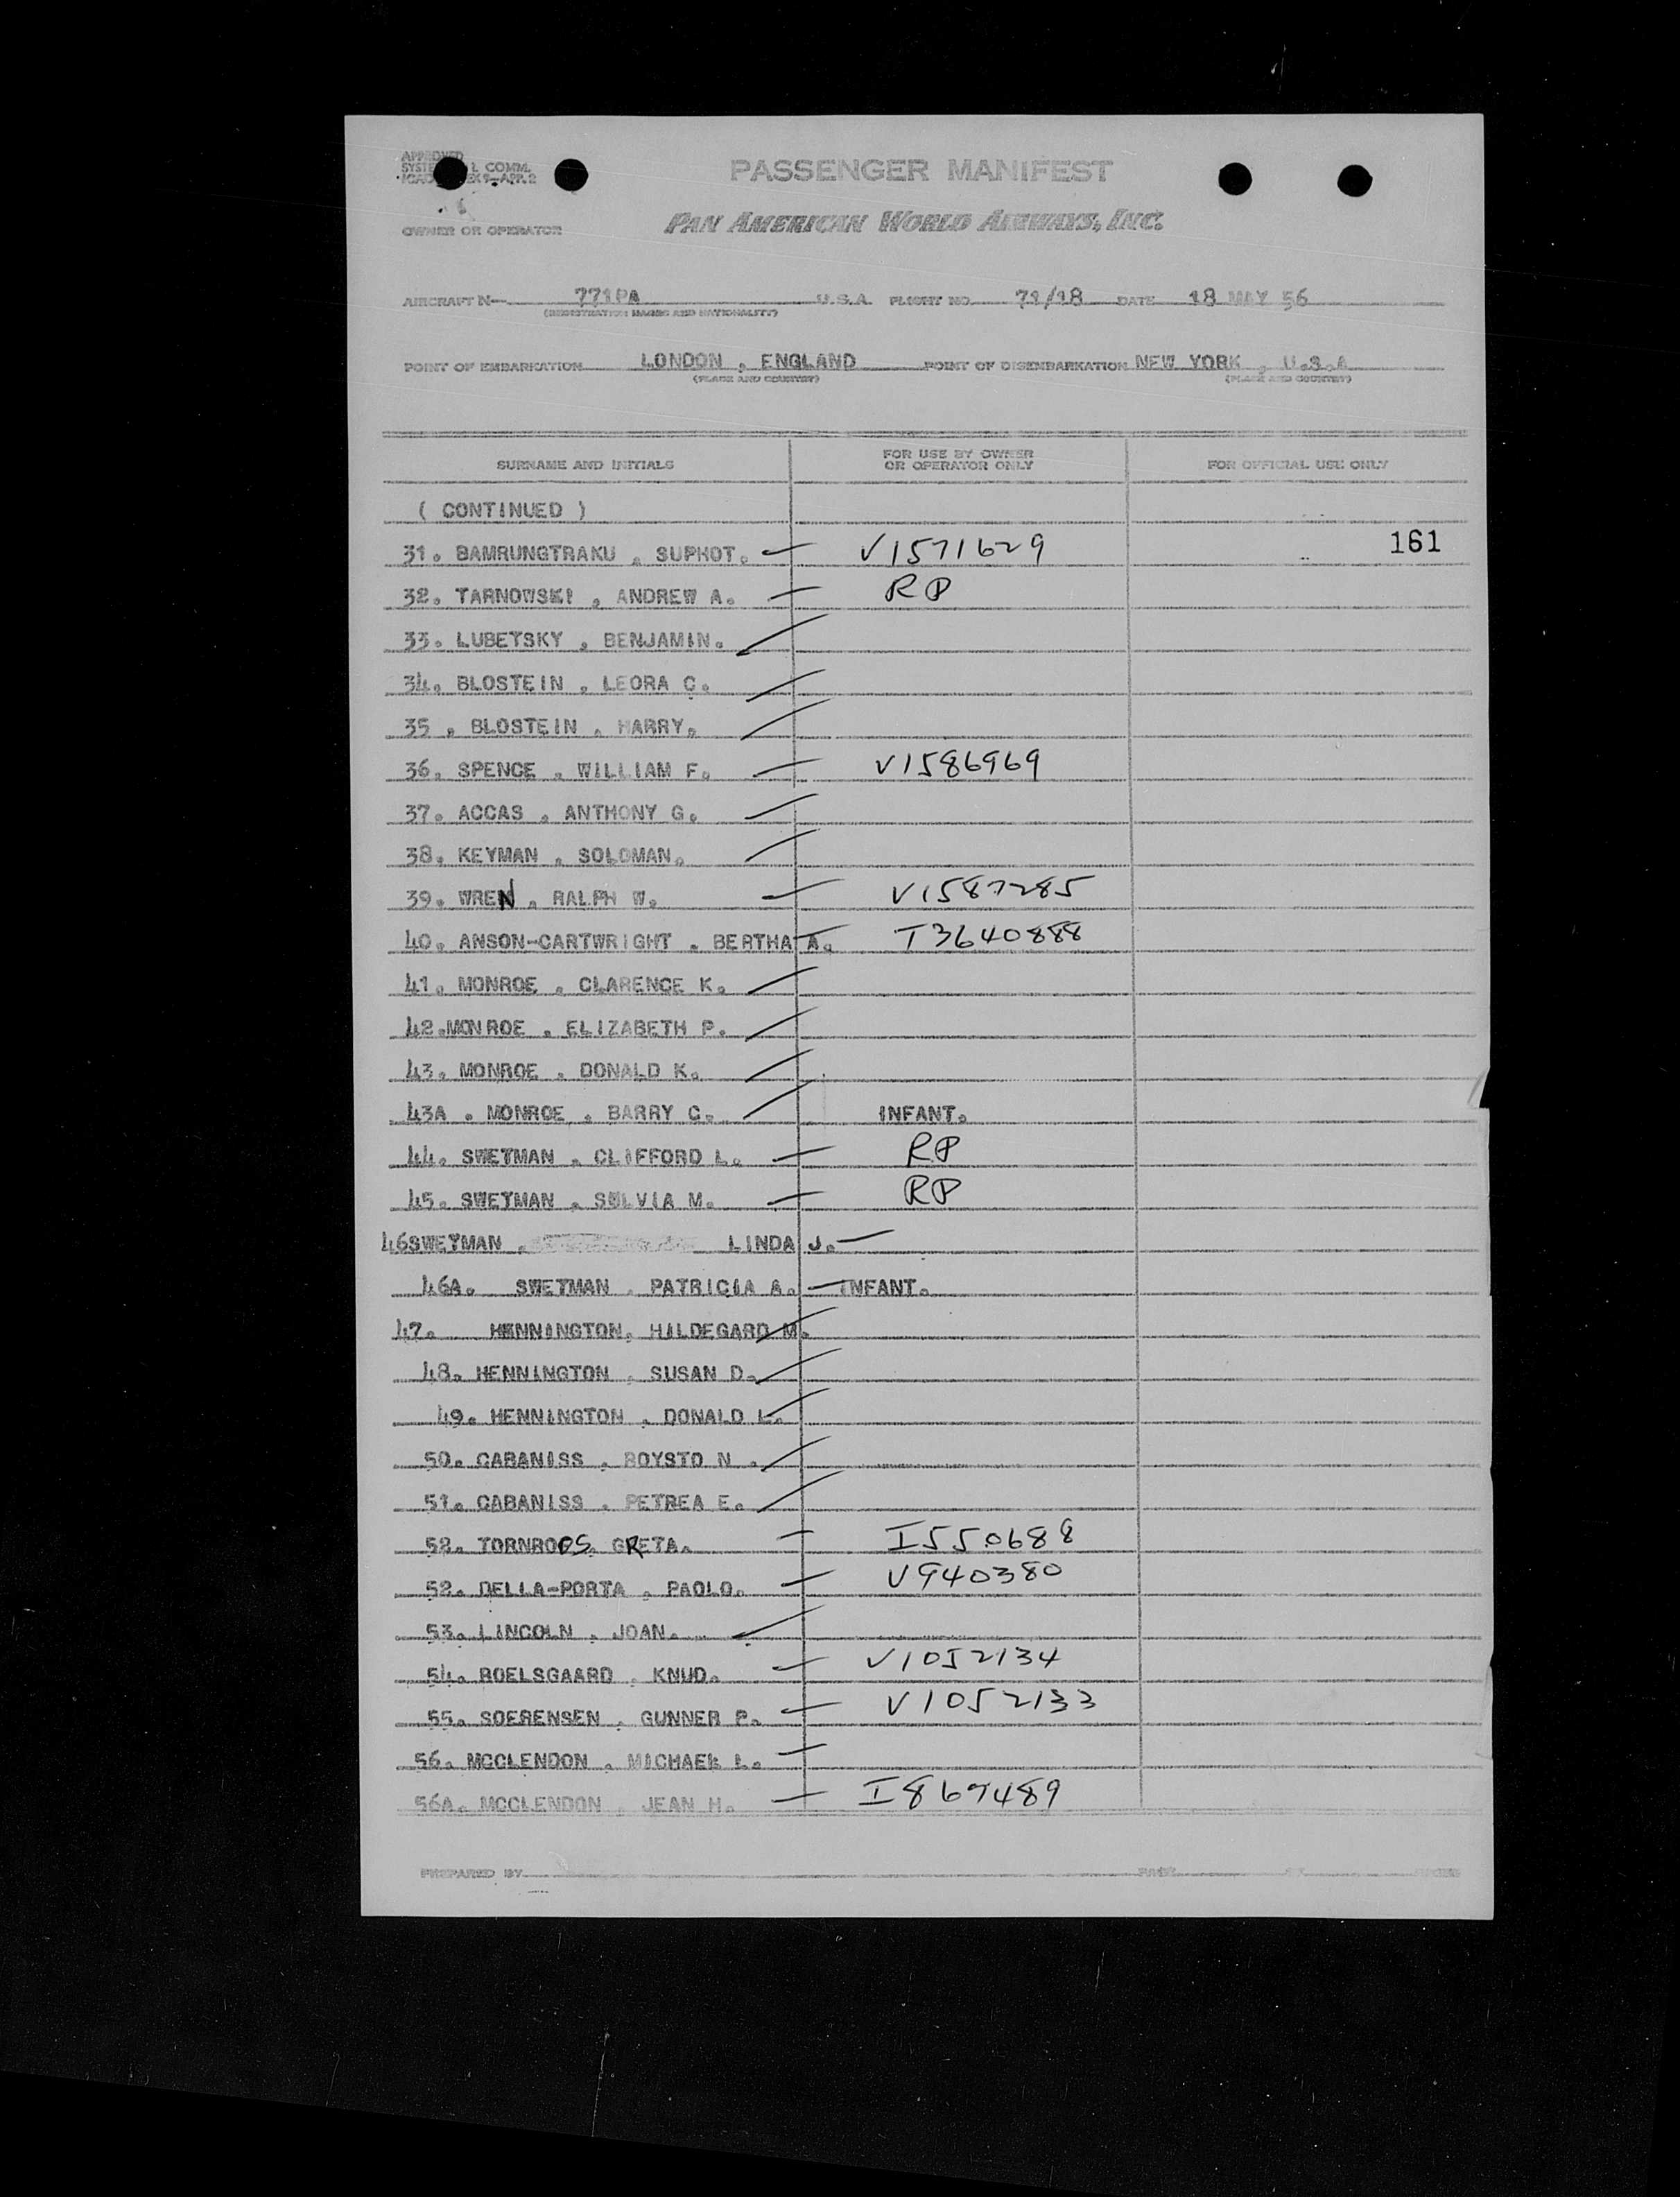 APPROVED
SYSTEM COMM.
ICAO APP. 2
PASSENGER MANIFEST
OWNER OR OPERATOR
PAN AMERICAN WORLD AIRWAYS, INC.
AIRCRAFT N— 771PA U.S.A. FLIGHT NO. 71/18 DATE 18 MAY 56
(REGISTRATION MARKS AND NATIONALITY)
POINT OF EMBARKATION LONDON , ENGLAND POINT OF DISEMBARKATION NEW YORK , U.S.A
(PLACE AND COUNTRY) (PLACE AND COUNTRY)
SURNAME AND INITIALS FOR USE BY OWNER OR OPERATOR ONLY FOR OFFICIAL USE ONLY
( CONTINUED )
31. BAMRUNGTRAKU , SUPHOT. V1571629 161
32. TARNOWSKI , ANDREW A. RP
33. LUBETSKY , BENJAMIN.
34. BLOSTEIN , LEORA C.
35 . BLOSTEIN , HARRY.
36. SPENCE , WILLIAM F. V1586969
37. ACCAS , ANTHONY G.
38. KEYMAN , SOLOMAN.
39. WREN , RALPH W. V1587285
40. ANSON-CARTWRIGHT , BERTHA A. I3640888
41. MONROE , CLARENCE K.
42.MONROE , ELIZABETH P.
43. MONROE , DONALD K.
43A . MONROE , BARRY C. INFANT.
44. SWETMAN , CLIFFORD L. RP
45. SWETMAN , SULVIA M. RP
46SWETMAN , LINDA J.
46A. SWETMAN , PATRICIA A. INFANT.
47. HENNINGTON, HILDEGARD M.
48. HENNINGTON , SUSAN D.
49. HENNINGTON , DONALD L.
50. CABANISS , ROYSTO N .
51. CABANISS , PETREA E.
52. TORNROOS, GRETA. I550688
52. DELLA-PORTA , PAOLO. V940380
53. LINCOLN , JOAN.
54. ROELSGAARD , KNUD. V1052134
55. SOERENSEN , GUNNER P. V1052133
56. MCCLENDON , MICHAEL L.
56A. MCCLENDON , JEAN H. I867489
PREPARED BY PAGE OF PAGES